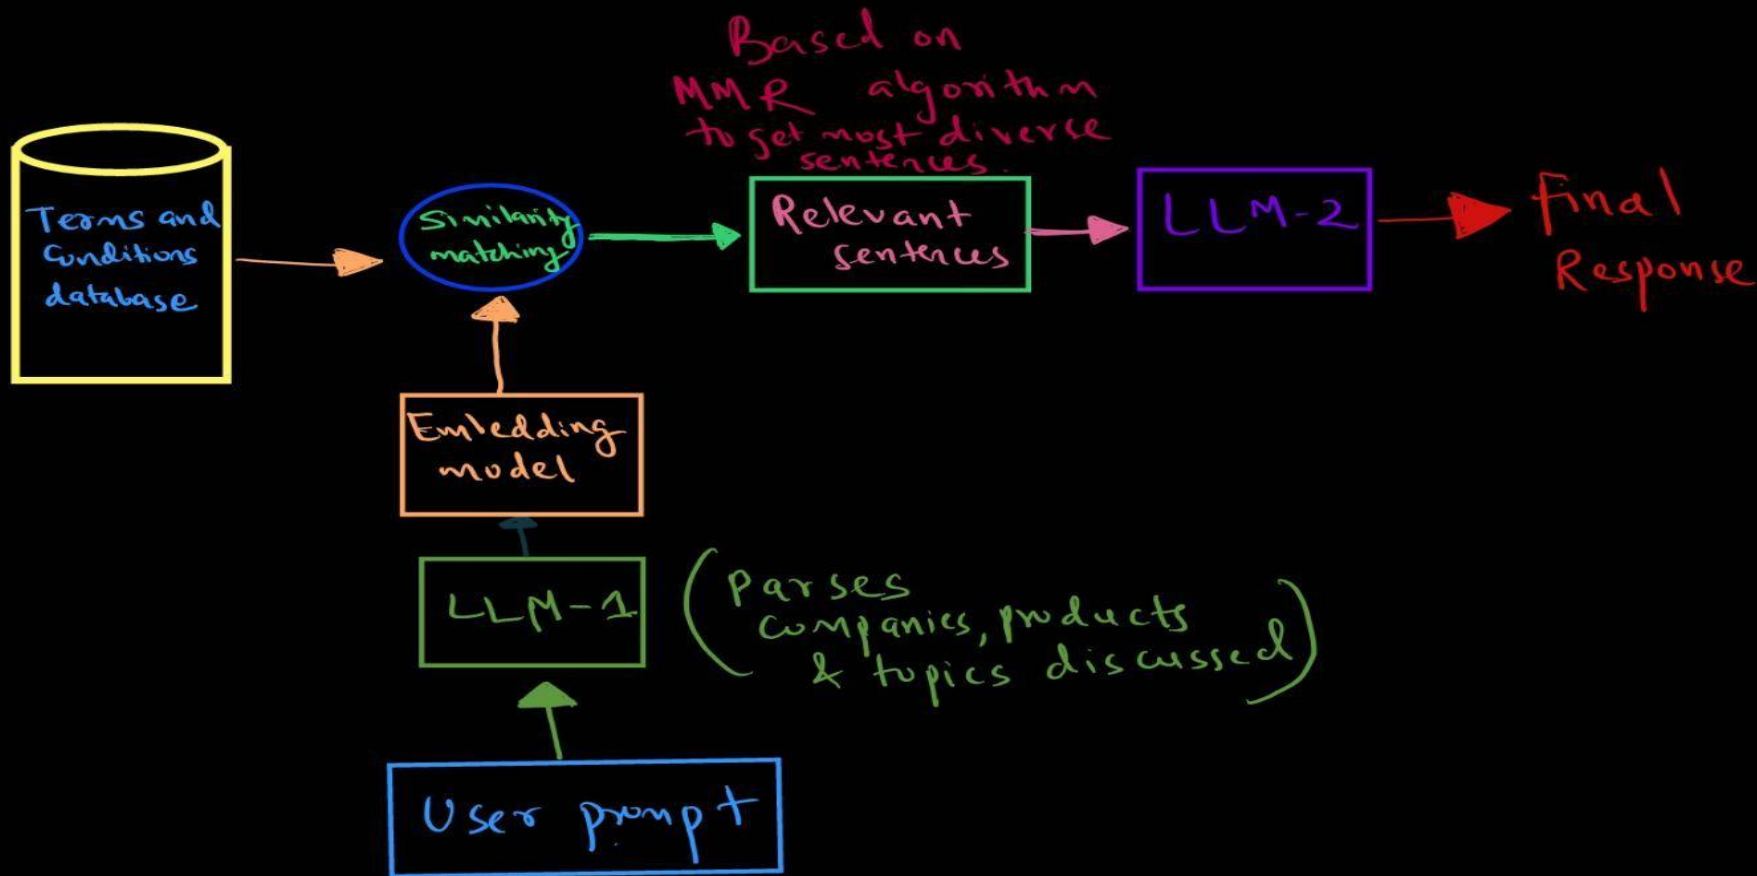 Based on
MMR algorithm
to get most diverse
sentences.
Terms and
Conditions
database
Similarity
matching
Relevant
sentences
LLM-2
Final
Response
Embedding
model
LLM-1
(Parses
companies, products
& topics discussed)
User prompt